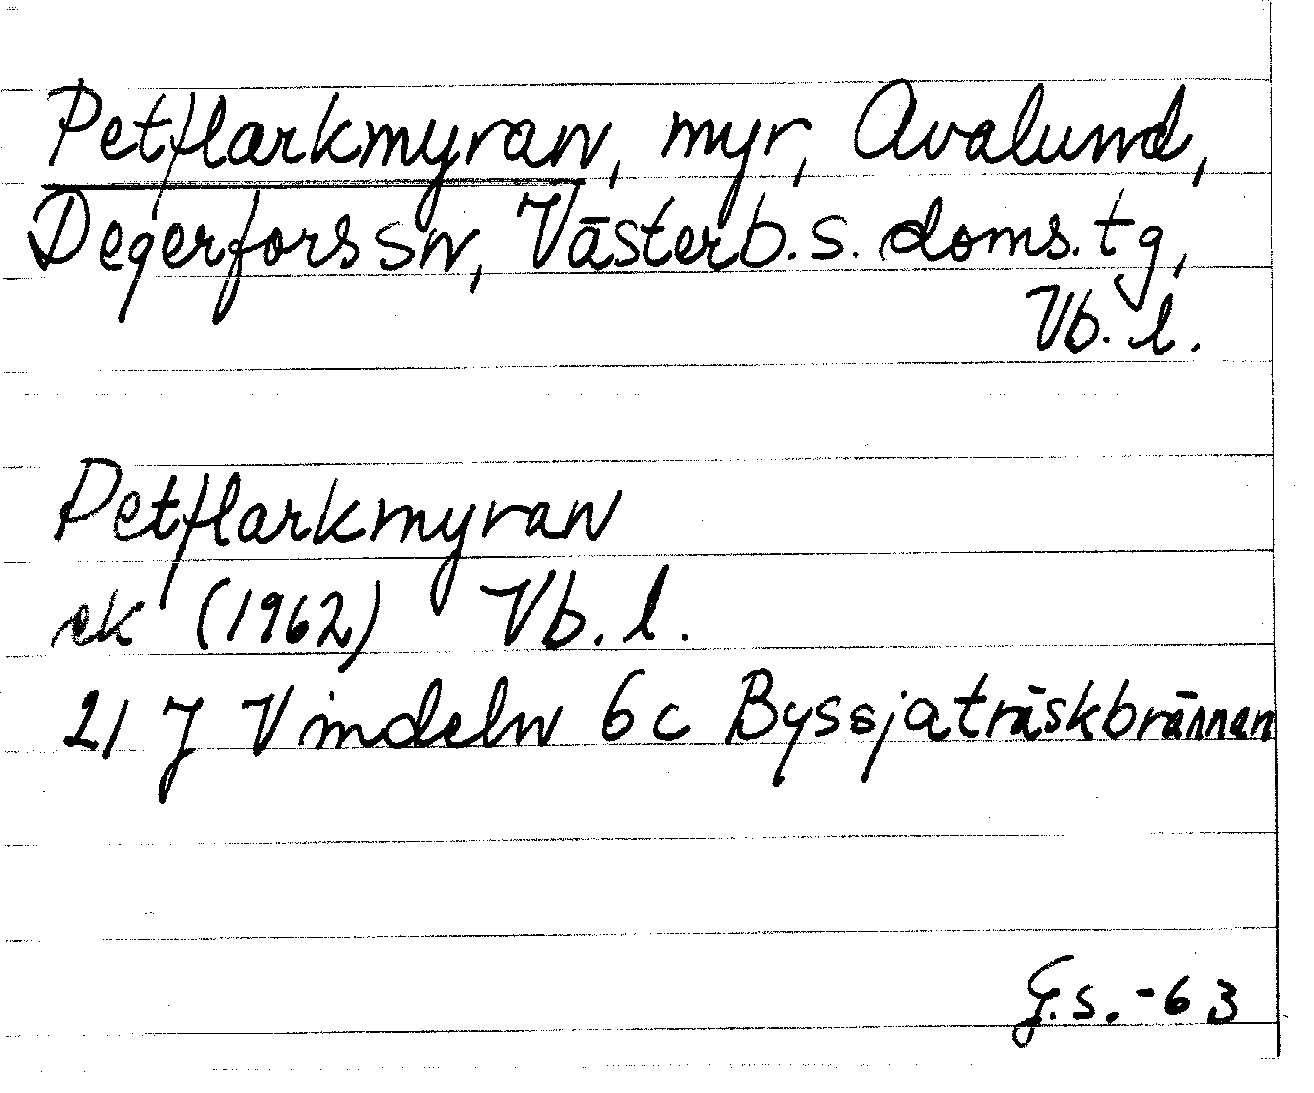 Petflarkmyran, myr, Avalund,
Degerfors sn, Västerb. s. doms. tg,
Vb. l.
Petflarkmyran
ek (1962) Vb. l.
21 J Vindeln 6c Byssjaträskbrännan
G.s. -63